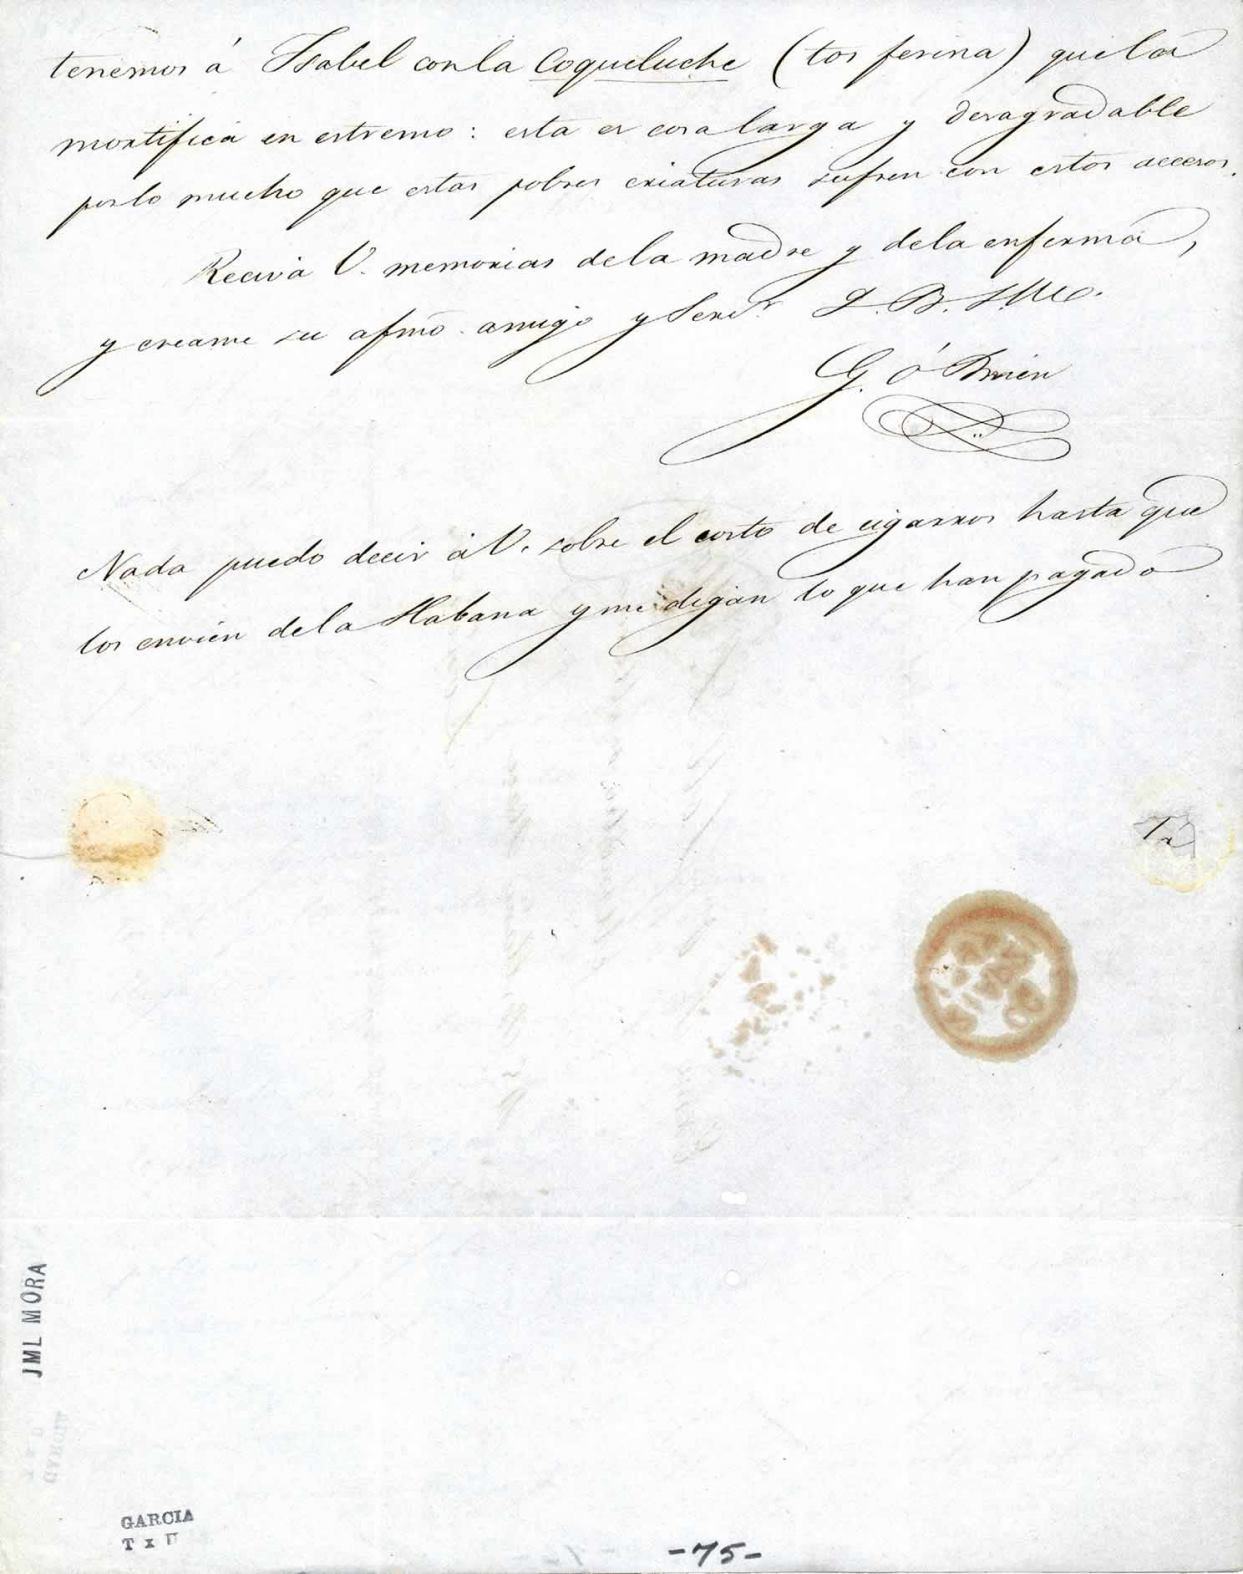 tenemos á Isabel con la Coqueluche (tos ferina) que la
mortifica en estremo: esta es cosa larga y desagradable
por lo mucho que estas pobres criaturas sufren con estos accesos.
Reciva V. memorias de la madre y de la enferma,
y creame su afmo. amigo y Servr. Q. B. S. M.
G. ó Brien
Nada puedo decir á V. sobre el costo de cigarros hasta que
los envien de la Habana y me digan lo que han pagado
JML MORA
GARCIA
T x
-75-